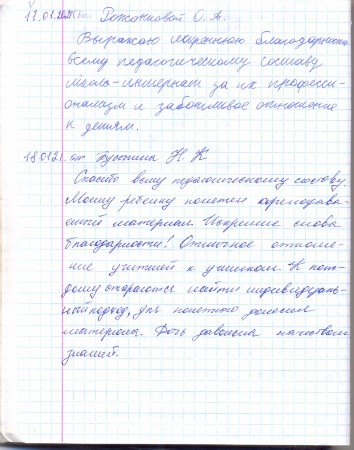 11.01.2021 от Рожанковой О. А.
Выражаю искреннюю благодарность
всему педагогическому составу
школы-интернат за их професси-
онализм и заботливое отношение
к детям.
18.01.21. от Бустина Н. К
Спасибо всему педагогическому составу.
Моему ребенку понятен преподава-
емый материал. Искренние слова
благодарности! Отличное отноше-
ние учителей к ученикам. К каж-
дому стараются найти индивидуаль-
ный подход, понятно доносят
материал. Дочь довольна качеством
знаний.